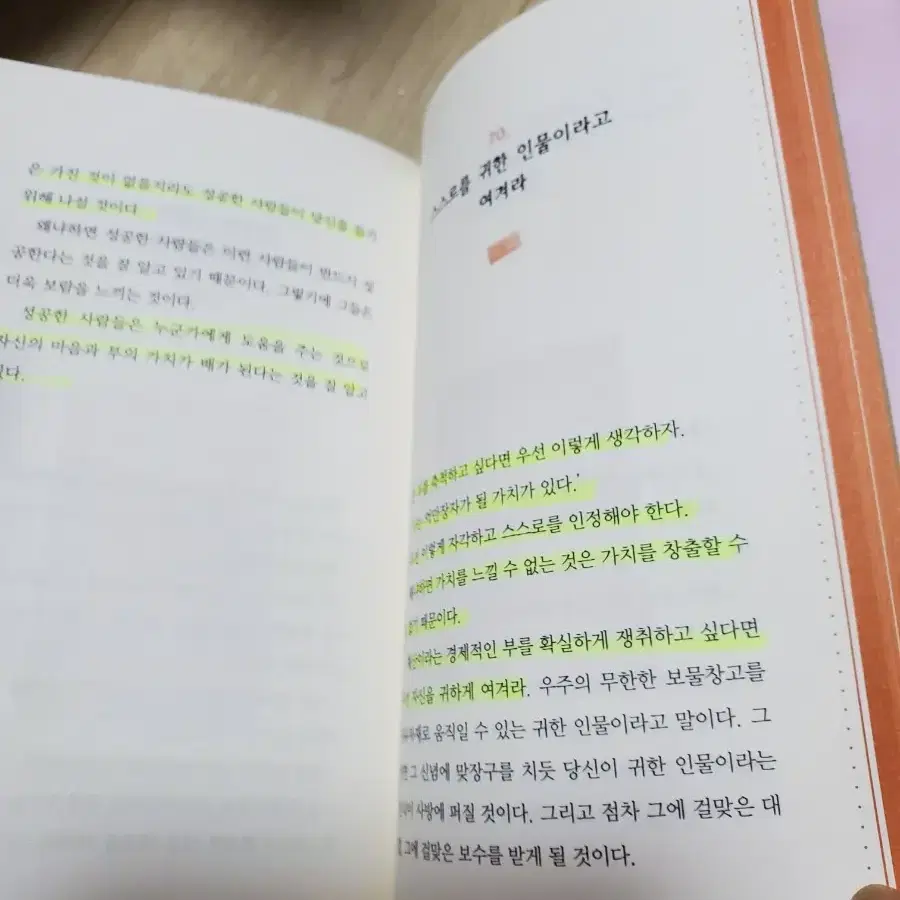 은 가진 것이 없을지라도 성공한 사람들이 당신을 돕기
위해 나설 것이다.
왜냐하면 성공한 사람들은 이런 사람들이 반드시 성
공한다는 것을 잘 알고 있기 때문이다. 그렇기에 그들은
더욱 보람을 느끼는 것이다.
성공한 사람들은 누군가에게 도움을 주는 것으로
자신의 마음과 부의 가치가 배가 된다는 것을 잘 알고
있다.
70.
스스로를 귀한 인물이라고
여겨라
축적하고 싶다면 우선 이렇게 생각하자.
억만장자가 될 가치가 있다.'
이렇게 자각하고 스스로를 인정해야 한다.
가치를 느낄 수 없는 것은 가치를 창출할 수
없기 때문이다.
경제적인 부를 확실하게 쟁취하고 싶다면
자신을 귀하게 여겨라. 우주의 무한한 보물창고를
움직일 수 있는 귀한 인물이라고 말이다. 그
그 신념에 맞장구를 치듯 당신이 귀한 인물이라는
사방에 퍼질 것이다. 그리고 점차 그에 걸맞은 대
그에 걸맞은 보수를 받게 될 것이다.